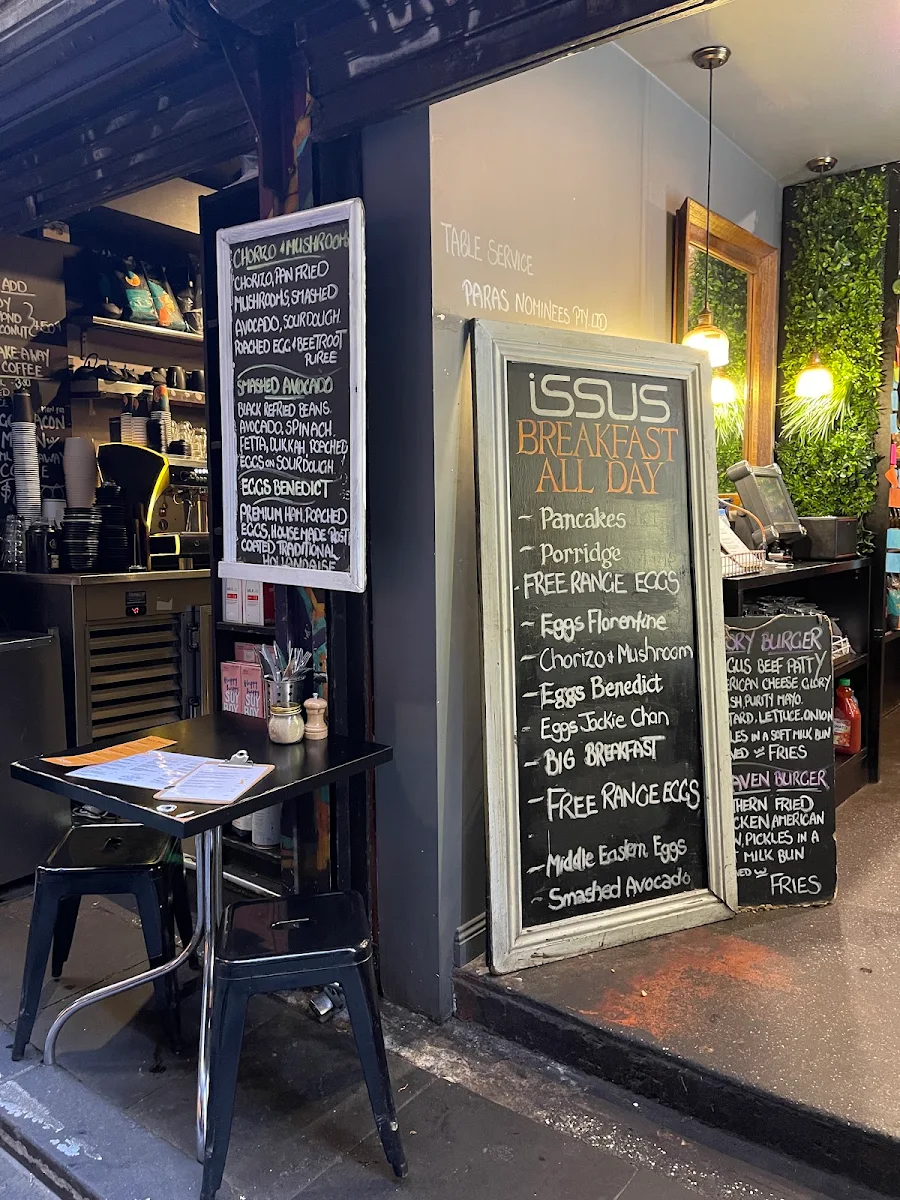 ADD
COCONUT
TAKE AWAY
COFFEE
CHORIZO & MUSHROOM
CHORIZO, PAN FRIED
MUSHROOMS, SMASHED
AVOCADO, SOURDOUGH
POACHED EGG & BEETROOT
PUREE
SMASHED AVOCADO
BLACK REFRIED BEANS.
AVOCADO, SPINACH.
FETTA, DUKKAH, POACHED
EGGS ON SOURDOUGH.
EGGS BENEDICT
PREMIUM HAM, POACHED
EGGS, HOUSE MADE
COATED TRADITIONAL
HOLLANDAISE
TABLE SERVICE
PARAS NOMINEES PTY LTD
iSSUS
BREAKFAST
ALL DAY
- Pancakes
- Porridge
- FREE RANGE EGGS
- Eggs Florentine
- Chorizo & Mushroom
- Eggs Benedict
Eggs Jackie Chan
- BIG BREAKFAST
- FREE RANGE EGGS
- Middle Eastern Eggs
- Smashed Avocado
ORY BURGER
GUS BEEF PATTY
RICAN CHEESE, GLORY
SH, PURITY MAYO.
TARD, LETTUCE, ONION
LES IN A SOFT MILK BUN
FRIES
AVEN BURGER
THERN FRIED
CKEN AMERICAN
N, PICKLES IN A
MILK BUN
FRIES
SOY
BOY